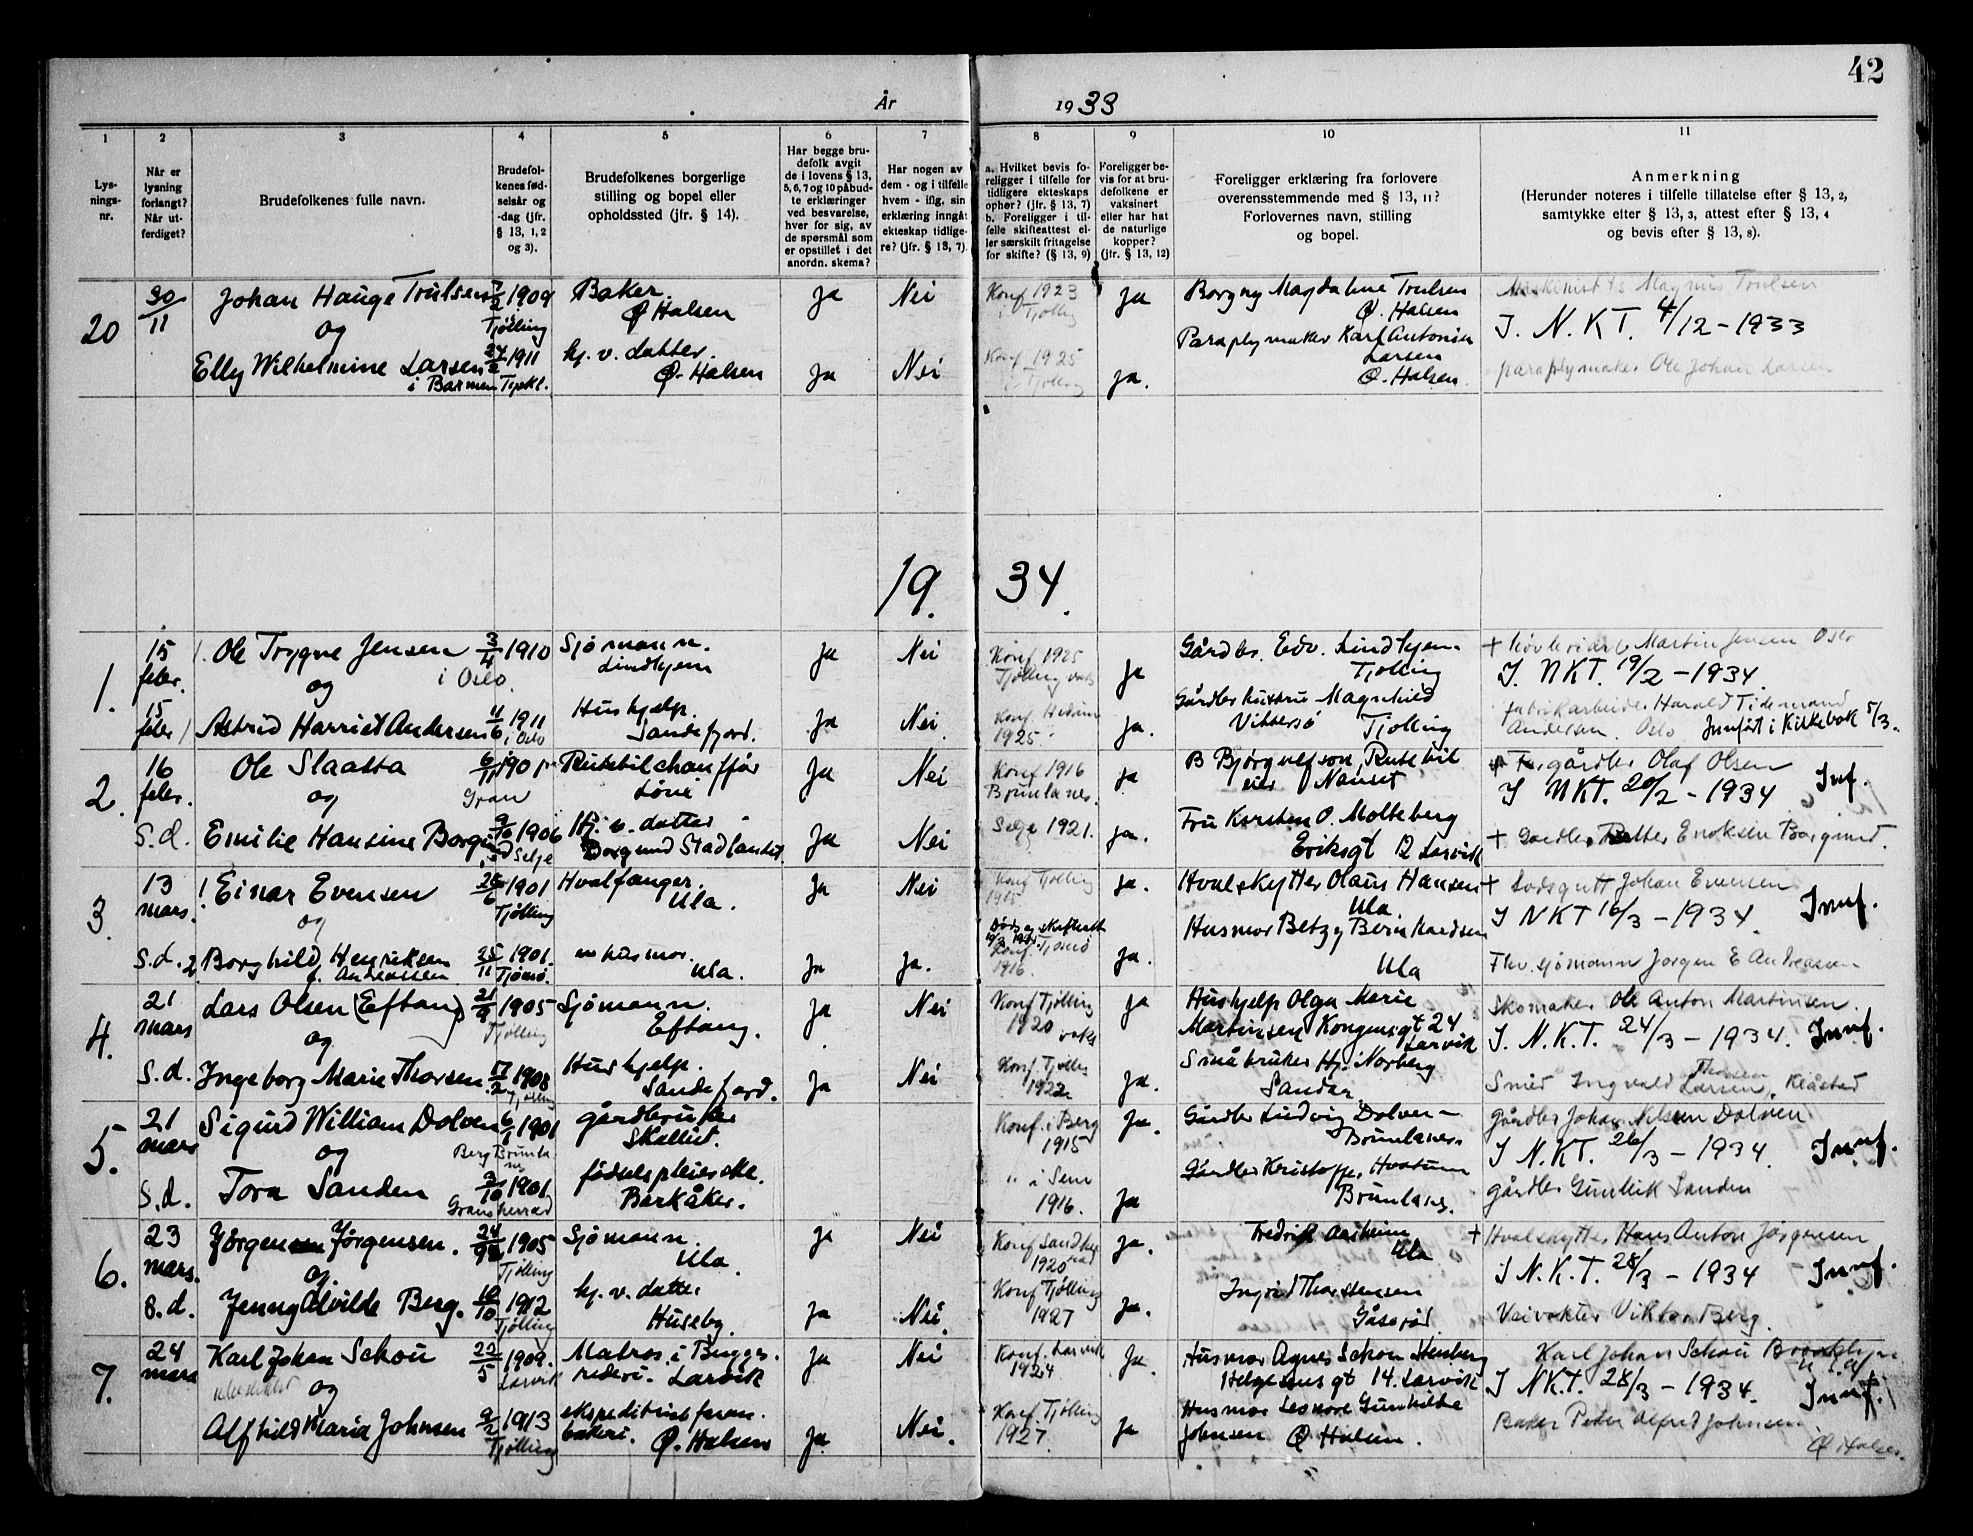 42
År 1933
1
Lys-
nings-
nr.
2
Når er
lysning
forlangt?
Når ut-
ferdiget?
3
Brudefolkenes fulle navn.
4
Brudefol-
kenes fød-
selsår og
-dag (jfr.
§ 13, 1, 2
og 3).
5
Brudefolkenes borgerlige
stilling og bopel eller
opholdssted (jfr. § 14).
6
Har begge bru-
defolk avgit
de i lovens § 13,
5, 6, 7 og 10 påbud-
te erklæringer
ved besvarelse,
hver for sig, av
de spørsmål som
er opstillet i det
anordn. skema?
7
Har nogen av
dem - og i tilfelle
hvem - iflg. sin
erklæring inngåt
ekteskap tidlige-
re? (jfr. § 13, 7).
8
a. Hvilket bevis fo-
religger i tilfelle for
tidligere ekteskaps
ophør? (jfr. § 13, 7)
b. Foreligger i til-
felle skifteattest el-
ler særskilt fritagelse
for skifte? (§ 13, 9)
9
Foreligger be-
vis for at bru-
defolkene er
vaksinert
eller har hat
de naturlige
kopper?
(jfr. § 13, 12)
10
Foreligger erklæring fra forlovere
overensstemmende med § 13, 11?
Forlovernes navn, stilling
og bopel.
11
Anmerkning
(Herunder noteres i tilfelle tillatelse efter § 13, 2,
samtykke efter § 13, 3, attest efter § 13, 4
og bevis efter § 13, 8).
20
30/11
Johan Hauge Trulsen 7/2 1909 Tjølling
Baker Ø Halsen
Ja Nei
Konf 1923 i Tjølling
Ja
Borgny Magdalene Trulsen Ø. Halsen
Magnus Trulsen
I. N. K T. 4/12 - 1933
og
Elly Wilhelmine Larsen 24/2 1911
i Barmen
hj. v. datter. Ø. Halsen
Ja Nei
Konf 1925 i Tjølling
ja.
Paraplymaker Karl Antonius Larsen Ø. Halsen
paraplymaker Ole Johan Larsen
19. 34.
1.
15 febr.
Ole Trygve Jensen 3/4 1910 i Oslo
Sjømann. Lindhjem
Ja Nei
Konf 1925 Tjølling
Ja
Gårdbr. Edv. Lindhjem. Tjølling
+ Martin Jensen Oslo
I. NKT. 19/2 - 1934.
og
15 febr
Astrid Harriet Andersen 11/6 1911 i Oslo
Hushjelp. Sandefjord.
Ja Nei
Konf. Hedrum 1925.
Ja.
Magnhild Vittersø Tjølling
fabrikarbeider Harald Tidemand Andersen. Oslo
Innført i Kirkebok 5/3.
2.
16 febr.
Ole Slaatta 1901 Gran
Rutebilchauffør
Ja Nei
Konf 1916 Brunlanes.
ja
B Bjørgulfson, Rutebileier Nanset
gårdbr Olaf Olsen
I NKT. 20/2 - 1934 Inf.
og
S. d.
Emilie Hansine Borgund 9/10 1906 Selje
Hj. v. datter Borgund Stadlandet
Ja Nei
Selje 1921.
ja.
Fru Karsten O. Molteberg
Eriksgt 12 Larvik
+ Gardbr. Petter Enoksen Borgund.
3.
13 mars.
Einar Evensen 26/6 1901 Tjølling
Hvalfanger. Ula.
Ja Nei
Konf Tjølling 1915
Ja.
Hvalskytter Olaus Hansen Ula.
+ Losgutt Johan Evensen
I NKT 16/3 - 1934. Innf.
og
S. d.
2 Borghild Henriksen f. Andreassen 25/11 1901. Tjømø.
husmor. Ula.
Ja ja.
Konf. Tjømø 1916.
Ja.
Husmor Betzy Bernhardsen Ula
Fhv. sjømann Jørgen E Andreasen
4.
21 mars
Lars Olsen (Eftang) 21/9 1905 Tjølling
Sjømann. Eftang.
Ja Nei
Konf Tjølling 1920
Ja
Hushjelp Olga Marie Martinsen Kongensgt 24 Larvik
Skomaker Ole Anton Martinsen.
I. N. K. T. 24/3 - 1934. Innf.
og
S. d.
Ingeborg Marie Thorsen 17/2 1908 Tjølling
Hushjelp. Sandefjord.
Ja Nei
Konf Tjølling 1922
Ja.
Småbruker Hj. Norberg Sandar.
Smed Ingvald Larsen, Klåstad
5.
21 mars
Sigurd William Dolven 6/1 1901
Berg Brunlanes
gårdbruker Skallist.
Konf. i Berg 1915
Ja.
Gårdbr Ludvig Dolven - Brunlanes.
gårdbr Johan Nilsen Dolven
I N. K T. 26/3 - 1934. Innf.
og
S. d.
Tora Sanden 2/10 1901. Gransherrad
fødselspleierske. Berkåker.
" i Sem 1916.
Ja
Gårdbr Kristoffer Hvatum Brunlanes.
gårdbr Gunleik Sanden
6.
23 mars.
Jørgen Jørgensen. 24/9 1905 Tjølling
Sjømann. Ula.
Ja Nei
Konf Sandherad 1920
Ja.
Fredrik Aarheim Ula
+ Hvalskytter Hans Anton Jørgensen
I N. K. T. 28/3 - 1934 Innf.
og.
S. d.
Jenny Alvilde Berg. 10/10 1912 Tjølling
hj. v. datter Huseby.
Ja Nei.
Konf Tjølling 1927
Ja.
Ingrid Thorstensen Gåserød
Veivokter Viktor Berg.
7.
24 mars
Karl Johan Schou 22/5 1909. Larvik
Matros i Bugges rederi. Larvik
Ja Nei
Konf. Larvik 1924
Ja.
Husmor Agnes Schou Stenberg
Helgesensgt 14. Larvik
Karl Johan Schou Brooklyn U S A
I NKT. 28/3 - 1934. Innf.
og
Alfhild Maria Johnsen 9/2 1913 Tjølling
Ø. Halsen
Ja Nei.
Konf Tjølling 1927.
Ja
Husmor Leonore Gunhilde Johnsen Ø Halsen.
Baker Peder Alfred Johnsen
Ø Halsen.